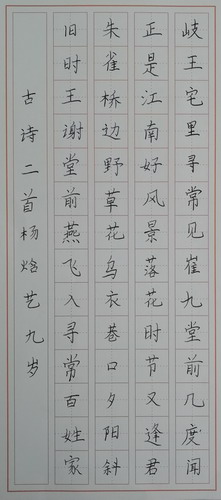 岐王宅里寻常见崔九堂前几度闻
正是江南好风景落花时节又逢君
朱雀桥边野草花乌衣巷口夕阳斜
旧时王谢堂前燕飞入寻常百姓家
古诗二首杨艺九岁